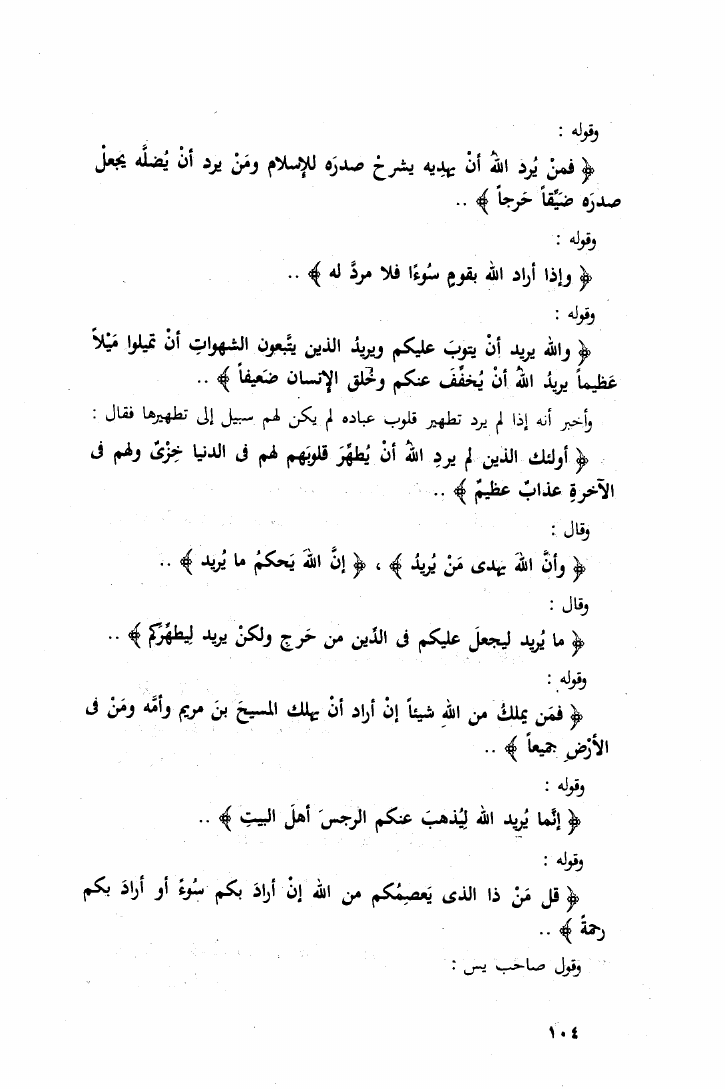 وقوله :
﴿ فمنْ يُرد اللهُ أنْ يهديه يشرحْ صدرَه للإسلام ومَنْ يرد أنْ يُضلَّه يجعلْ
صدرَه ضيِّقاً حَرجاً ﴾ ..
وقوله :
﴿ وإذا أراد الله بقومٍ سُوءًا فلا مردَّ له ﴾ ..
وقوله :
﴿ والله يريد أنْ يتوبَ عليكم ويريدُ الذين يتَّبعون الشهواتِ أنْ تميلوا مَيْلاً
عَظيماً يريدُ اللهُ أنْ يُخفِّفَ عنكم وخُلق الإنسان ضَعيفاً ﴾ ..
وأخبر أنه إذا لم يرد تطهير قلوب عباده لم يكن لهم سبيل إلى تطهيرها فقال :
﴿ أولئك الذين لم يردِ اللهُ أنْ يُطهِّرَ قلوبَهم لهم فى الدنيا خِزْىٌ ولهم فى
الآخرةِ عذابٌ عظيمٌ ﴾ ..
وقال :
﴿ وأنَّ اللهَ يهدى مَنْ يُريدُ ﴾ ، ﴿ إنَّ اللهَ يَحكمُ ما يُريد ﴾ ..
وقال :
﴿ ما يُريد ليجعلَ عليكم فى الدِّين من حَرجٍ ولكنْ يريد لِيطهِّركم ﴾ ..
وقوله :
﴿ فمَن يملكُ من اللهِ شيئاً إنْ أراد أنْ يهلك المسيحَ بنَ مريم وأمَّه ومَنْ فى
الأرْضِ جميعاً ﴾ ..
وقوله :
﴿ إنَّما يُريد الله لِيُذهبَ عنكم الرجسَ أهلَ البيتِ ﴾ ..
وقوله :
﴿ قل مَنْ ذا الذى يَعصِمُكم من الله إنْ أرادَ بكم سُوءً أو أرادَ بكم
رحمةً ﴾ ..
وقول صاحب يس :
١٠٤